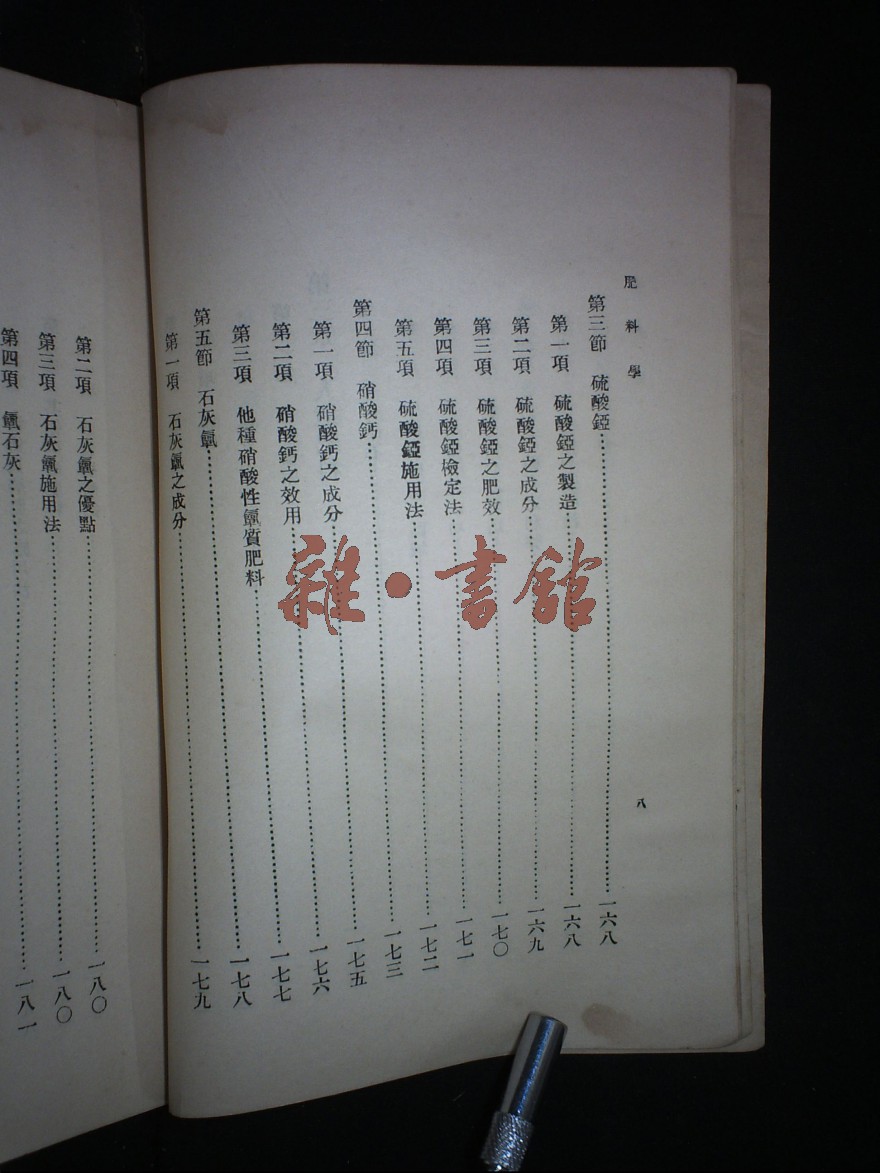 肥料學
八
第三節 硫酸錏……一六八
第一項 硫酸錏之製造……一六八
第二項 硫酸錏之成分……一六九
第三項 硫酸錏之肥效……一七〇
第四項 硫酸錏檢定法……一七一
第五項 硫酸錏施用法……一七二
第四節 硝酸鈣……一七三
第一項 硝酸鈣之成分……一七五
第二項 硝酸鈣之效用……一七六
第三項 他種硝酸性氮質肥料……一七七
第五節 石灰氮……一七八
第一項 石灰氮之成分……一七九
第二項 石灰氮之優點……一八〇
第三項 石灰氮施用法……一八〇
第四項 氮石灰……一八一
雜·書館